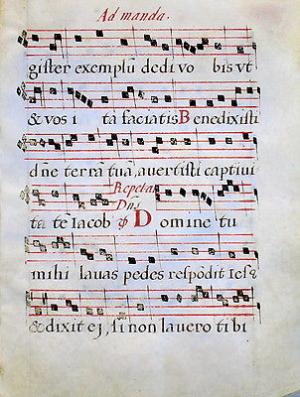 Ad manda.
gister exemplũ dedi vo bis vt
& vos i ta faciatis Benedixisti
dñe terrã tuã, avertisti captivi
Repetar
Dñs
ta tẽ Iacob Domine tu
mihi lavas pedes respõdit Ies9
& dixit ej, si non lavero tibi